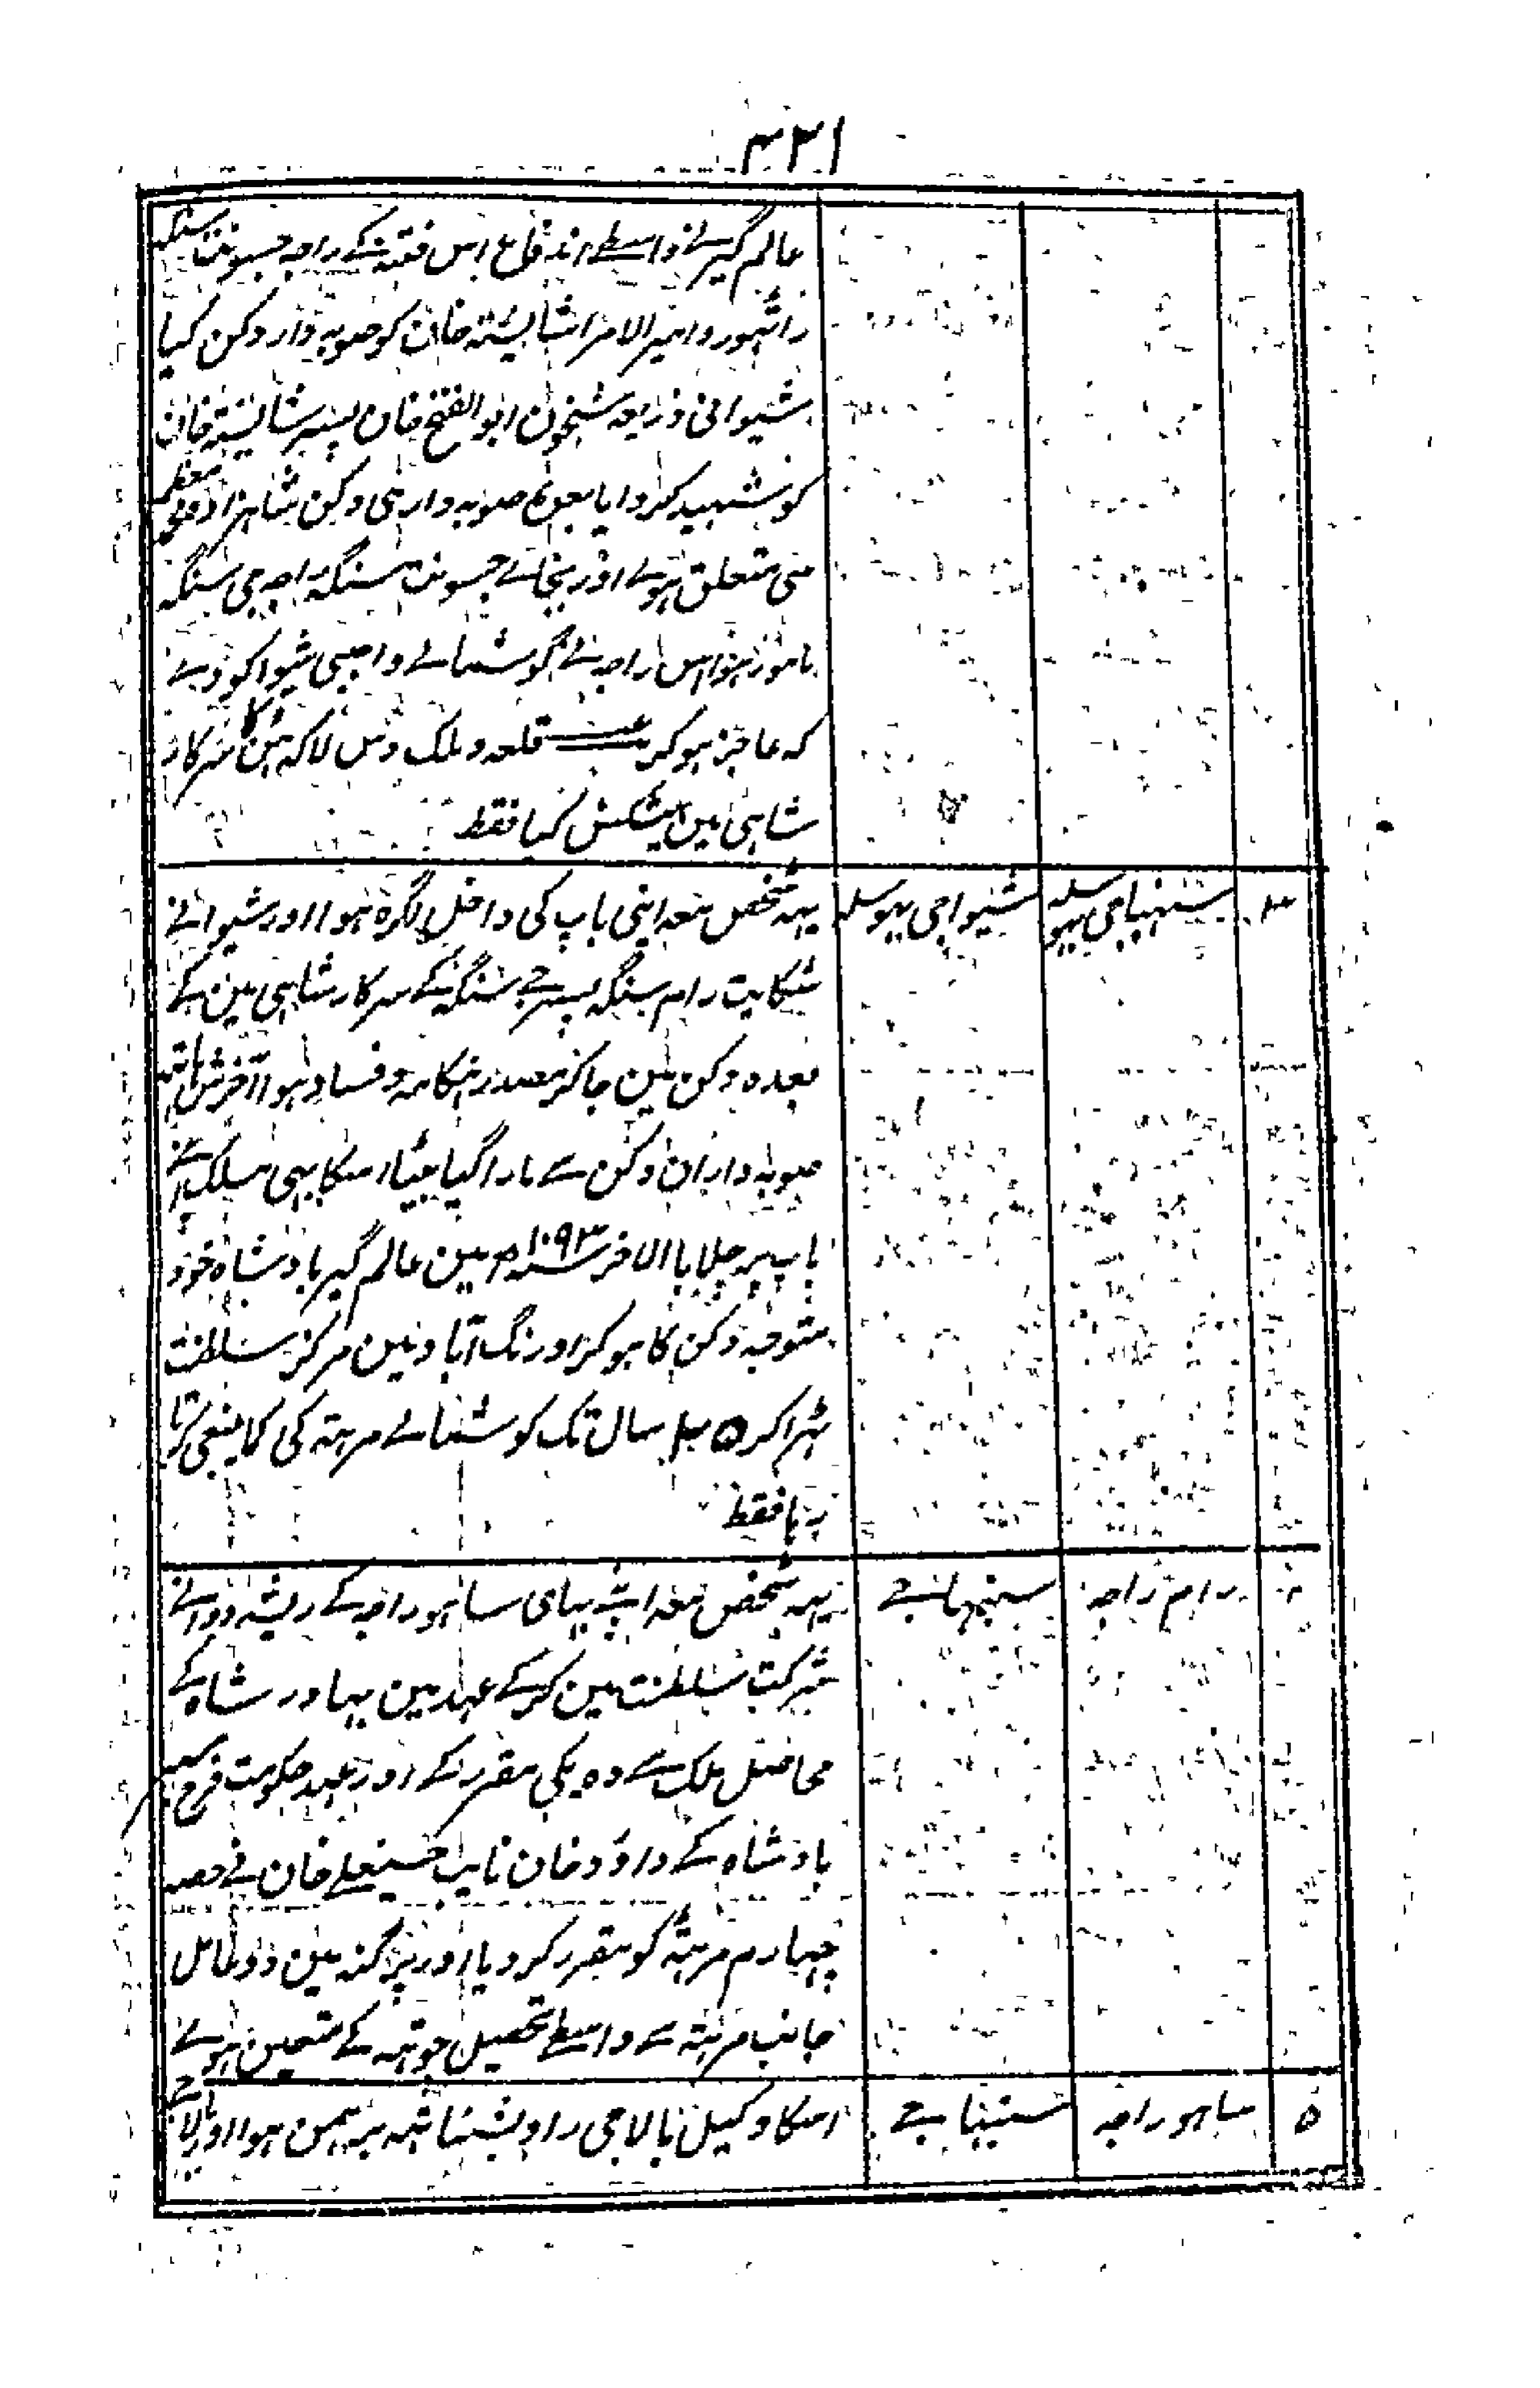 ۴۳۱
عالم گیر نے واسطے اندفاع اس فتنہ کے راجہ جسونت سنگہ
راٹھور و امیر الامرا شایستہ خان کو صوبہ دار دکن کیا
شیوا نی ذریعہ شبخون ابو الفتح خان پسر شایستہ خان
کو شہید کر دایا بعوض صوبہ داری دکن شاہزادہ معظم
سی متعلق ہوئے اور بجائے جسونت سنگہ راجہ جی سنگہ
مامور ہوا اس راجہ نے گوشمالے واجبی شیوا کو دے
کہ عاجز ہو کر قلعہ و ملک دس لاکہ ہن کا سرکار
شاہی مین پیشکش کیا فقط
۳ سنبہاجی بہوسلہ شیواجی بہوسلہ یہہ شخص معہ اپنی باپ کی داخل اگرہ ہوا اور شیوا نے
شکایت رام سنگہ پسر جے سنگہ کے سرکار شاہی مین کے
بعدہ دکن مین جا کر مصدر ہنگامہ و فساد ہوا آخرش ہاتہہ
صوبہ داران دکن سے مارا گیا بیٹا اسکا بہی مسلک اپنے
باپ پر چلا بالاخر سنہ ۱۰۹۳ مین عالم گیر بادشاہ خود
متوجہ دکن کا ہو کر اورنگ آباد مین مرکز سلطنت
ٹہرا کر ۲۵ سال تک گوشمالے مرہتہ کی کما ینبغی کرتا
رہا فقط
۴ رام راجہ سنبہاجے یہہ شخص معہ اپنے بہای ساہو راجہ کے ریشہ دوانے
شرکت سلطنت مین کر کے عہد مین بہادر شاہ کے
محاصل ملک سے دہ یکی مقرر کے اور عہد حکومت فرخ سیر
بادشاہ کے داؤد خان نایب حسینعلے خان نے حصہ
چہارم مرہتہ کو مقرر کر دیا اور پرگنہ مین دو عامل
جانب مرہتہ سے واسطے تحصیل چوتہہ کے متعین ہوئے
۵ ساہو راجہ سنبہاجے اسکا وکیل بالاجی راو بشناتہہ برہمن ہوا اور بالاجے